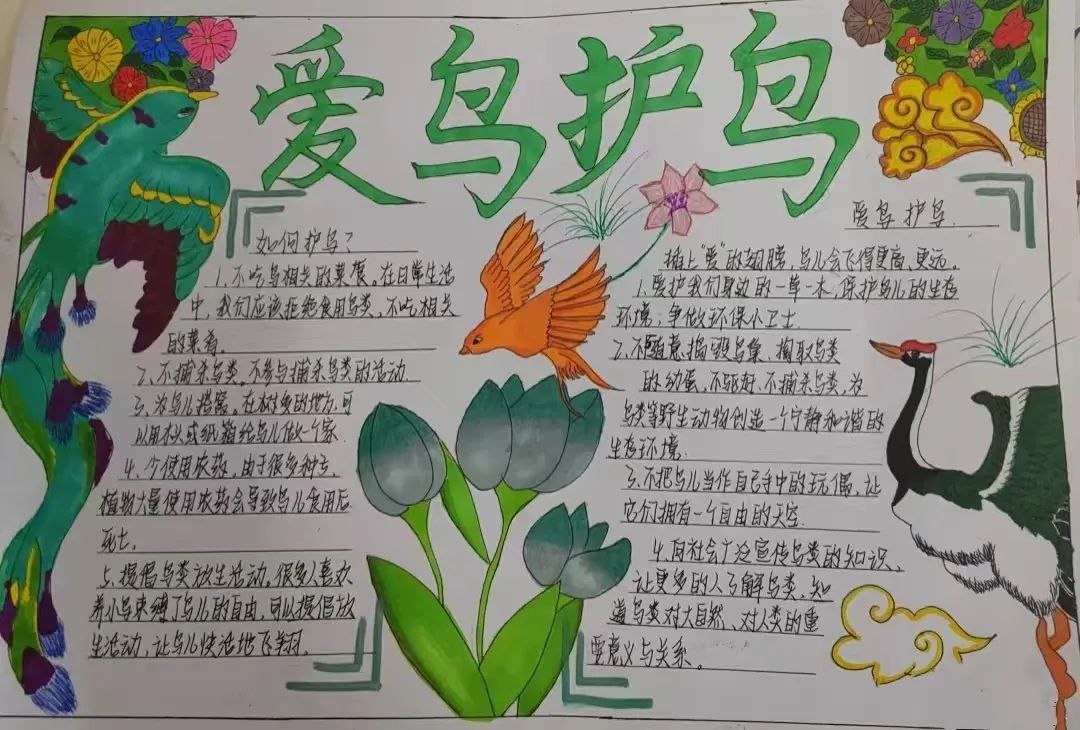 爱鸟护鸟
如何护鸟？
1、不吃鸟相关的菜肴。在日常生活
中，我们应该拒绝食用鸟类，不吃相关
的菜肴。
2、不捕杀鸟类。不参与捕杀鸟类的活动
3、为鸟儿搭窝。在树多的地方，可
以用木头或纸箱给鸟儿做一个家
4、少使用农药，由于很多种子、
植物大量使用农药会导致鸟儿食用后
死亡。
5、提倡鸟类放生活动，很多人喜欢
养小鸟束缚了鸟儿的自由，可以提倡放
生活动，让鸟儿快活地飞翔。
爱鸟 护鸟
插上“爱”的翅膀，鸟儿会飞得更高、更远。
1.爱护我们身边的一草一木，保护鸟儿的生态
环境；争做环保小卫士.
2.不随意捣毁鸟巢、掏取鸟类
的幼蛋、不玩好、不捕杀鸟类，为
鸟类等野生动物创造一个宁静和谐的
生态环境.
3.不把鸟儿当作自己手中的玩偶，让
它们拥有一个自由的天空.
4.向社会广泛宣传鸟类的知识，
让更多的人了解鸟类，知
道鸟类对大自然、对人类的重
要意义与关系。